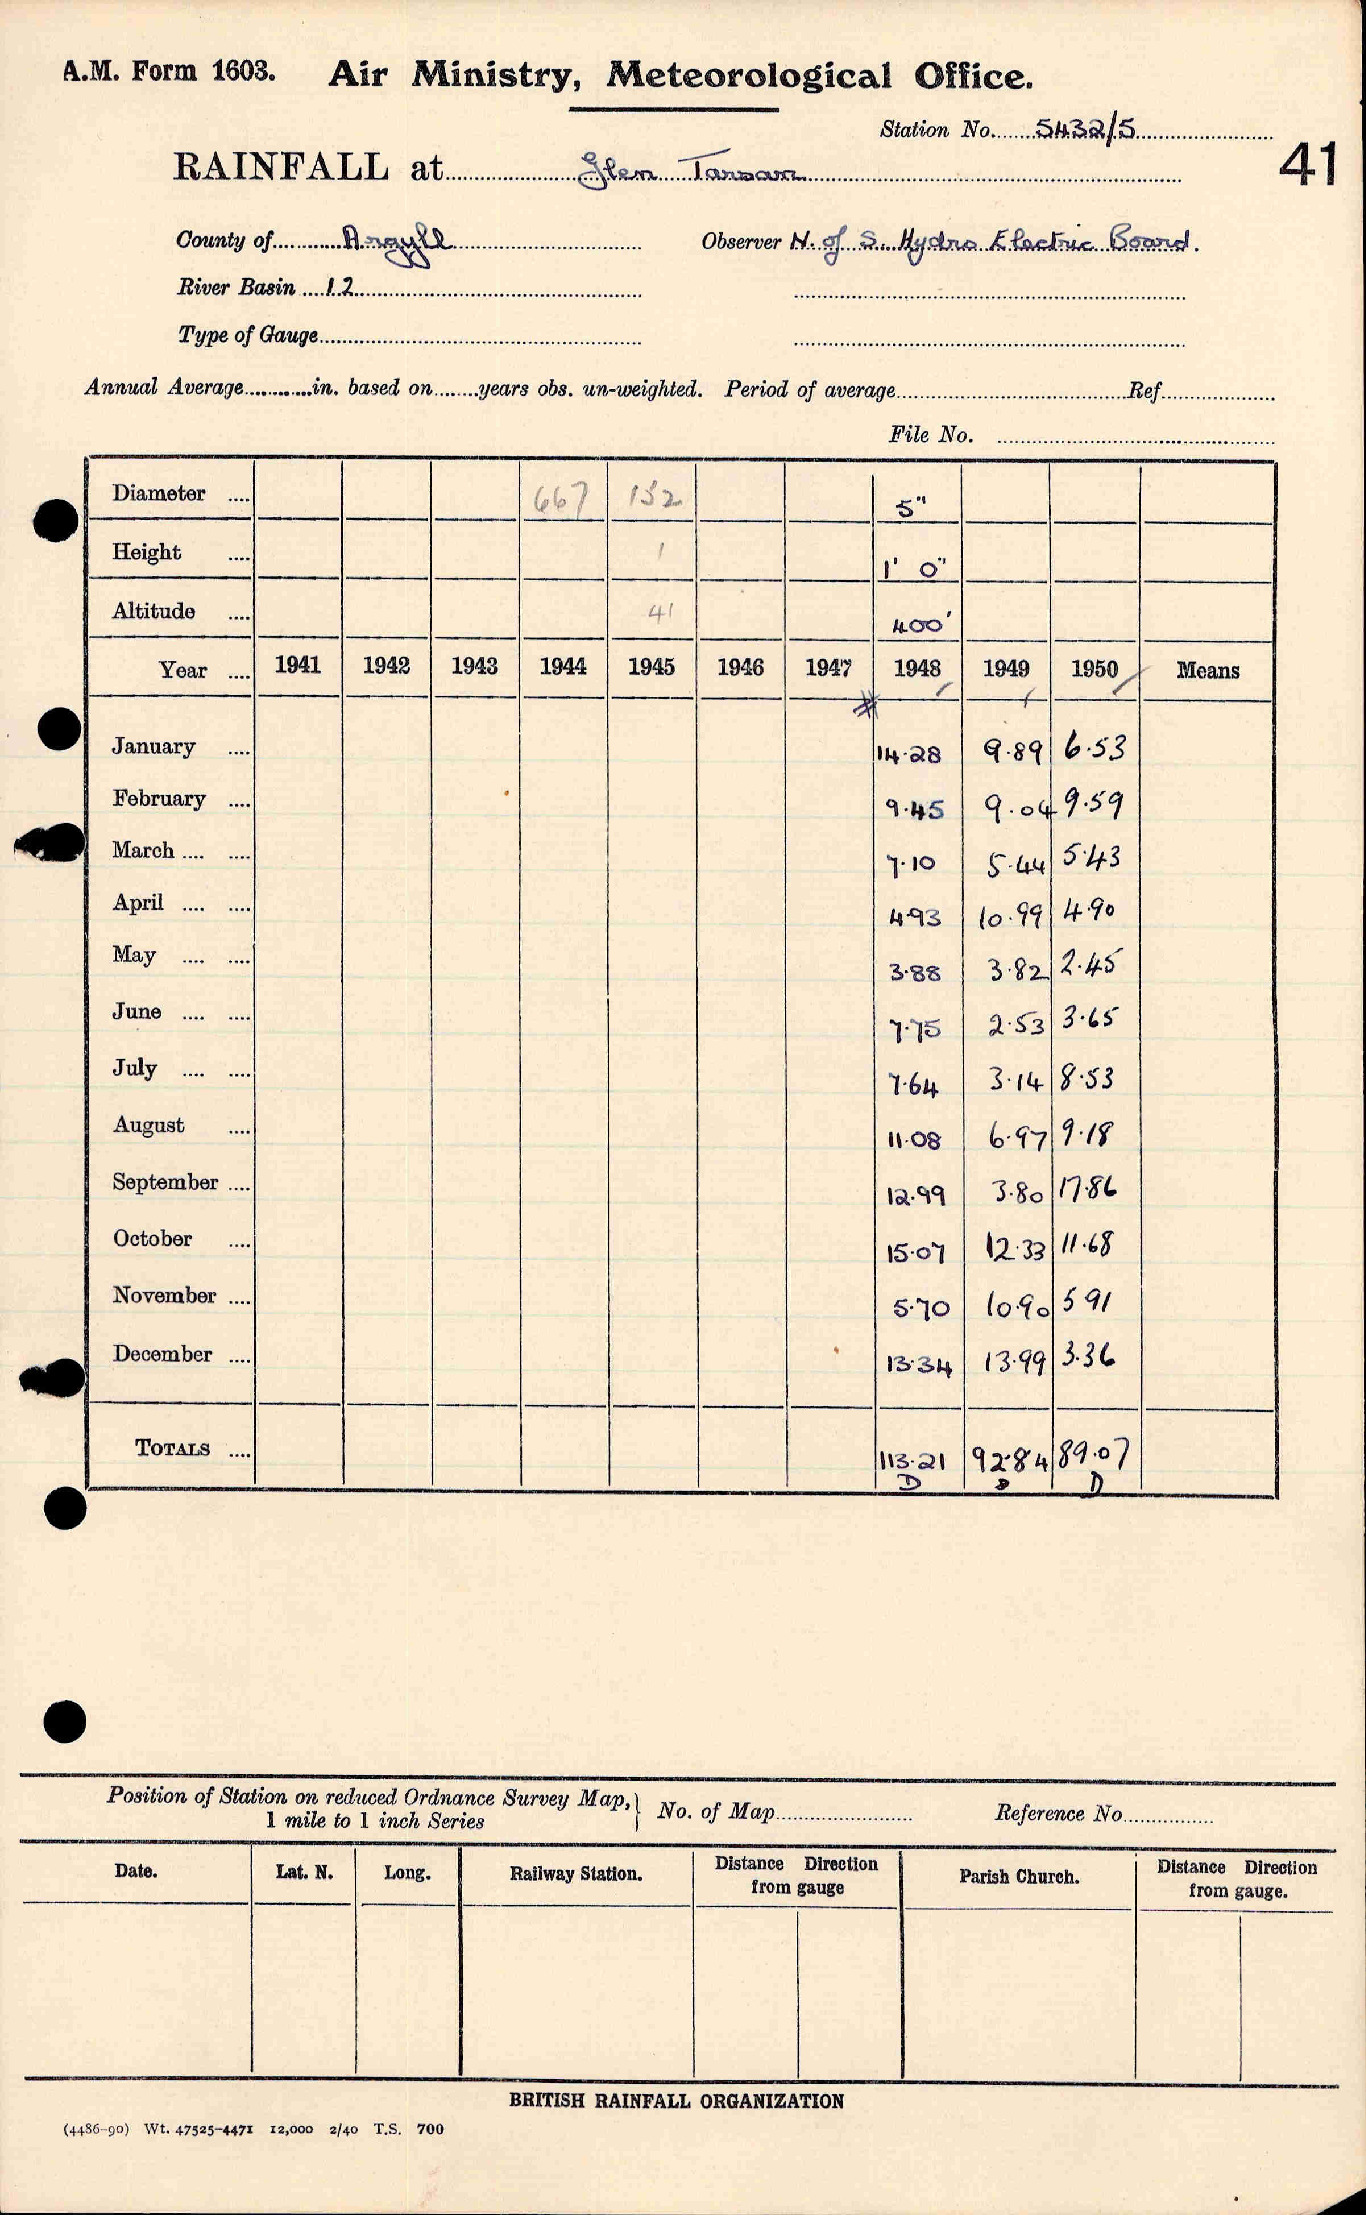 A.M. Form 1603. Air Ministry, Meteorological Office.
Station No. 5432/5
41
RAINFALL at Glen Tarsan
County of Argyll Observer N. of S. Hydro Electric Board.
River Basin 12
Type of Gauge
Annual Average in. based on years obs. un-weighted. Period of average Ref.
File No.
Diameter 667 152 5"
Height 1 1' 0"
Altitude 41 400'
Year 1941 1942 1943 1944 1945 1946 1947 1948 1949 1950 Means
January 14.28 9.89 6.53
February 9.45 9.04 9.59
March 7.10 5.44 5.43
April 4.93 10.99 4.90
May 3.88 3.82 2.45
June 7.75 2.53 3.65
July 7.64 3.14 8.53
August 11.08 6.97 9.18
September 12.99 3.80 17.86
October 15.07 12.33 11.68
November 5.70 10.90 5 91
December 13.34 13.99 3.36
TOTALS 113.21 92.84 89.07
D D D
Position of Station on reduced Ordnance Survey Map, No. of Map Reference No.
1 mile to 1 inch Series
Date. Lat. N. Long. Railway Station. Distance Direction from gauge Parish Church. Distance Direction from gauge.
BRITISH RAINFALL ORGANIZATION
(4486-90) Wt. 47525-4471 12,000 2/40 T.S. 700